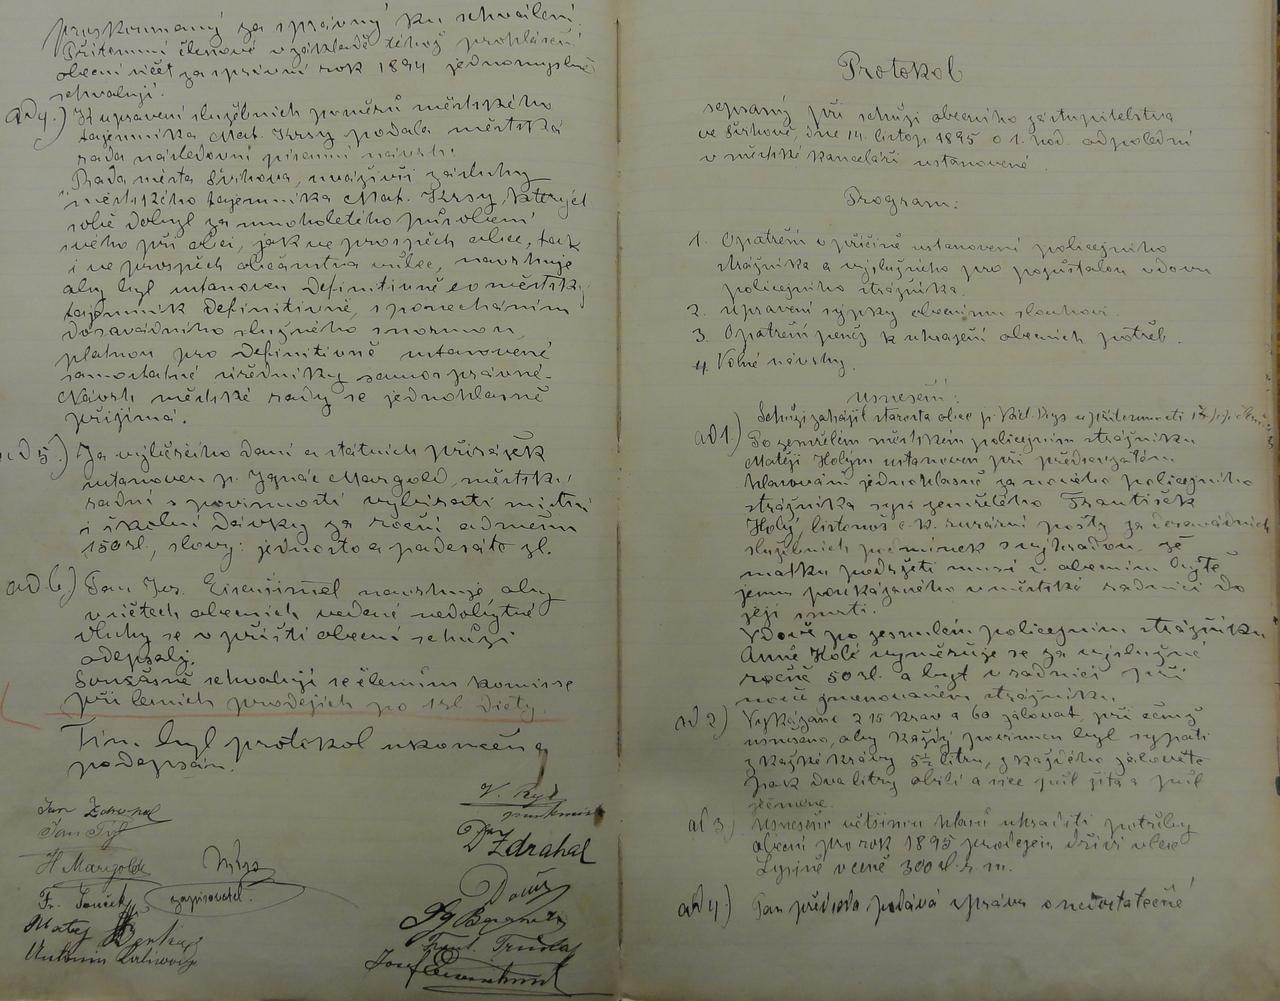 proskoumaný za správný ku schválení.
Přítomní členové v základě téhož prohlášení
obecní účet za správní rok 1894 jednomyslně
schvalují.
ad 4.) K upravení služebních poměrů městského
tajemníka Mat. Krsy podala městská
rada následovní písemní návrh:
"Rada města Švihova, uváživši zásluhy
městského tajemníka Mat. Krsy, kterýchž
sobě dobyl za mnoholetého působení
svého při obci, jak ve prospěch obce, tak
i ve prospěch občanstva vůbec, navrhuje
aby byl ustanoven definitivně co městský
tajemník definitivně, s ponecháním
dosavádního služného s normou
platnou pro definitivně ustanovené
samostatné úředníky samosprávné.
Návrh městské rady se jednohlasně
přijímá.
ad 5.) Za výběrčího daní a státních přirážek
ustanoven p. Ignác Margold, městský
radní s povinností vybírati místní
i školní dávky za roční odměnu
150 zl., slovy: jednosto a padesáte zl.
ad 6.) Pan Jos. Eisenšiml navrhuje, aby
v účtech obecních vedené nedobytné
dluhy se v příští obecní schůzi
odepsaly.
Současně schvalují se členům komisse
při lesních prodejích po 1 zl diety.
Tím byl protokol ukončen a
podepsán.
Jan Zdrahal
Jan Tyl
H Margold
Fr. Souček
zapisovatel.
Matěj
Antonín
V. Rys
purkmistr
Dr Zdrahal
Frant.
Josef Eisenschiml
Protokol
sepsaný při schůzi obecního zastupitelstva
ve Švihově, dne 14. listop 1895 o 1. hod. odpolední
v městské kanceláři ustanovené.
Program:
1. Opatření v příčině ustanovení policejního
strážníka a výslužného pro pozůstalou vdovu
policejního strážníka.
2. Upravení sýpky obecnímu slouhovi.
3. Opatření peněz k uhrazení obecních potřeb.
4. Volné návrhy.
Usnesení:
Schůzi zahájil starosta obce p. Václ. Rys u přítomnosti
ad 1.) Po zesnulém městském policejním strážníku
Matěji Holým ustanoven při předsevzatém
hlasování jednohlasně za nového policejního
strážníka syn zemřelého František
Holý, listonoš c. k. erární pošty za dosavádních
služebních podmínek s výhradou, že
matku podržeti musí v obecním bytě
jemu poukázaného v městské radnici do
její smrti.
Vdově po zesnulém policejním strážníku
Anně Holé vyměřuje se za výslužné
ročně 50 zl. a byt v radnici při
nově jmenovaném strážníku.
ad 2.) Vykázáno 215 krav a 60 jalovat, při čemž
usneseno, aby každý povinen byl sypati
z každé krávy 5½ litru, z každého jalovate
pak dva litry obilí a sice půl žita a půl
ječmene.
ad 3.) Usneseno většinou hlasů uhraditi potřeby
obecní pro rok 1895 prodejem dříví v lese
v ceně 300 zl. r. m.
ad 4.) Pan předseda podává zprávu o nedostatečné